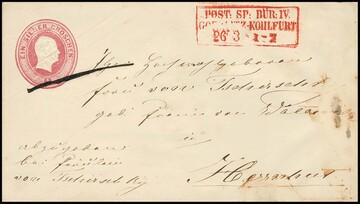 EIN SILBER GROSCHEN
POST: SP: BÜR: IV.
GOERLITZ-KOHLFURT
26 3 1-7
Hochwohlgeboren
von Tschirschky
geb
u
Herrnhut
abzugeben
bei Fräulein
von Tschirschky